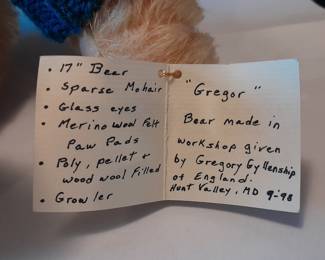 • 17" Bear
• Sparse Mohair
• Glass eyes
• Merino Wool Felt
Paw Pads
• Poly, pellet +
wood wool filled
• Growler
"Gregor"
Bear made in
workshop given
by Gregory Gyllenship
of England.
Hunt Valley, MD 9-98